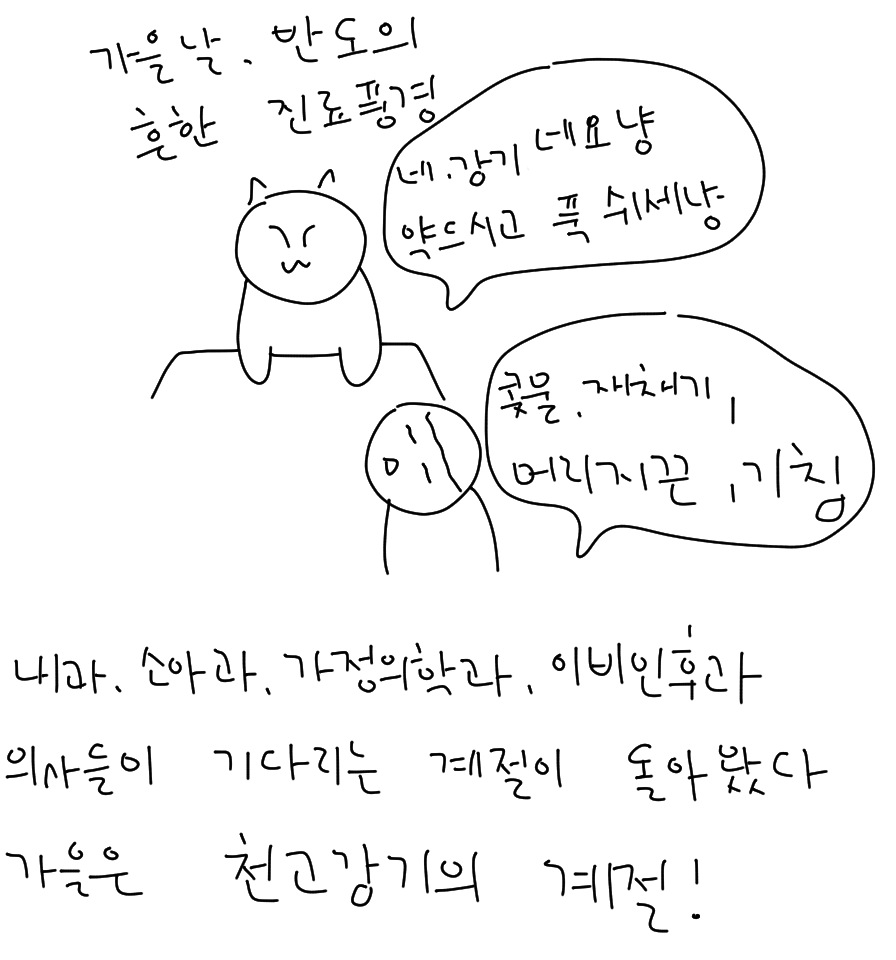 가을날. 반도의
흔한 진료풍경
네.강기네요냥
약드시고 푹 쉬세냥
콧물.재채기,
머리지끈,기침
내과. 소아과. 가정의학과. 이비인후과
의사들이 기다리는 계절이 돌아왔다
가을은 천고강기의 계절!